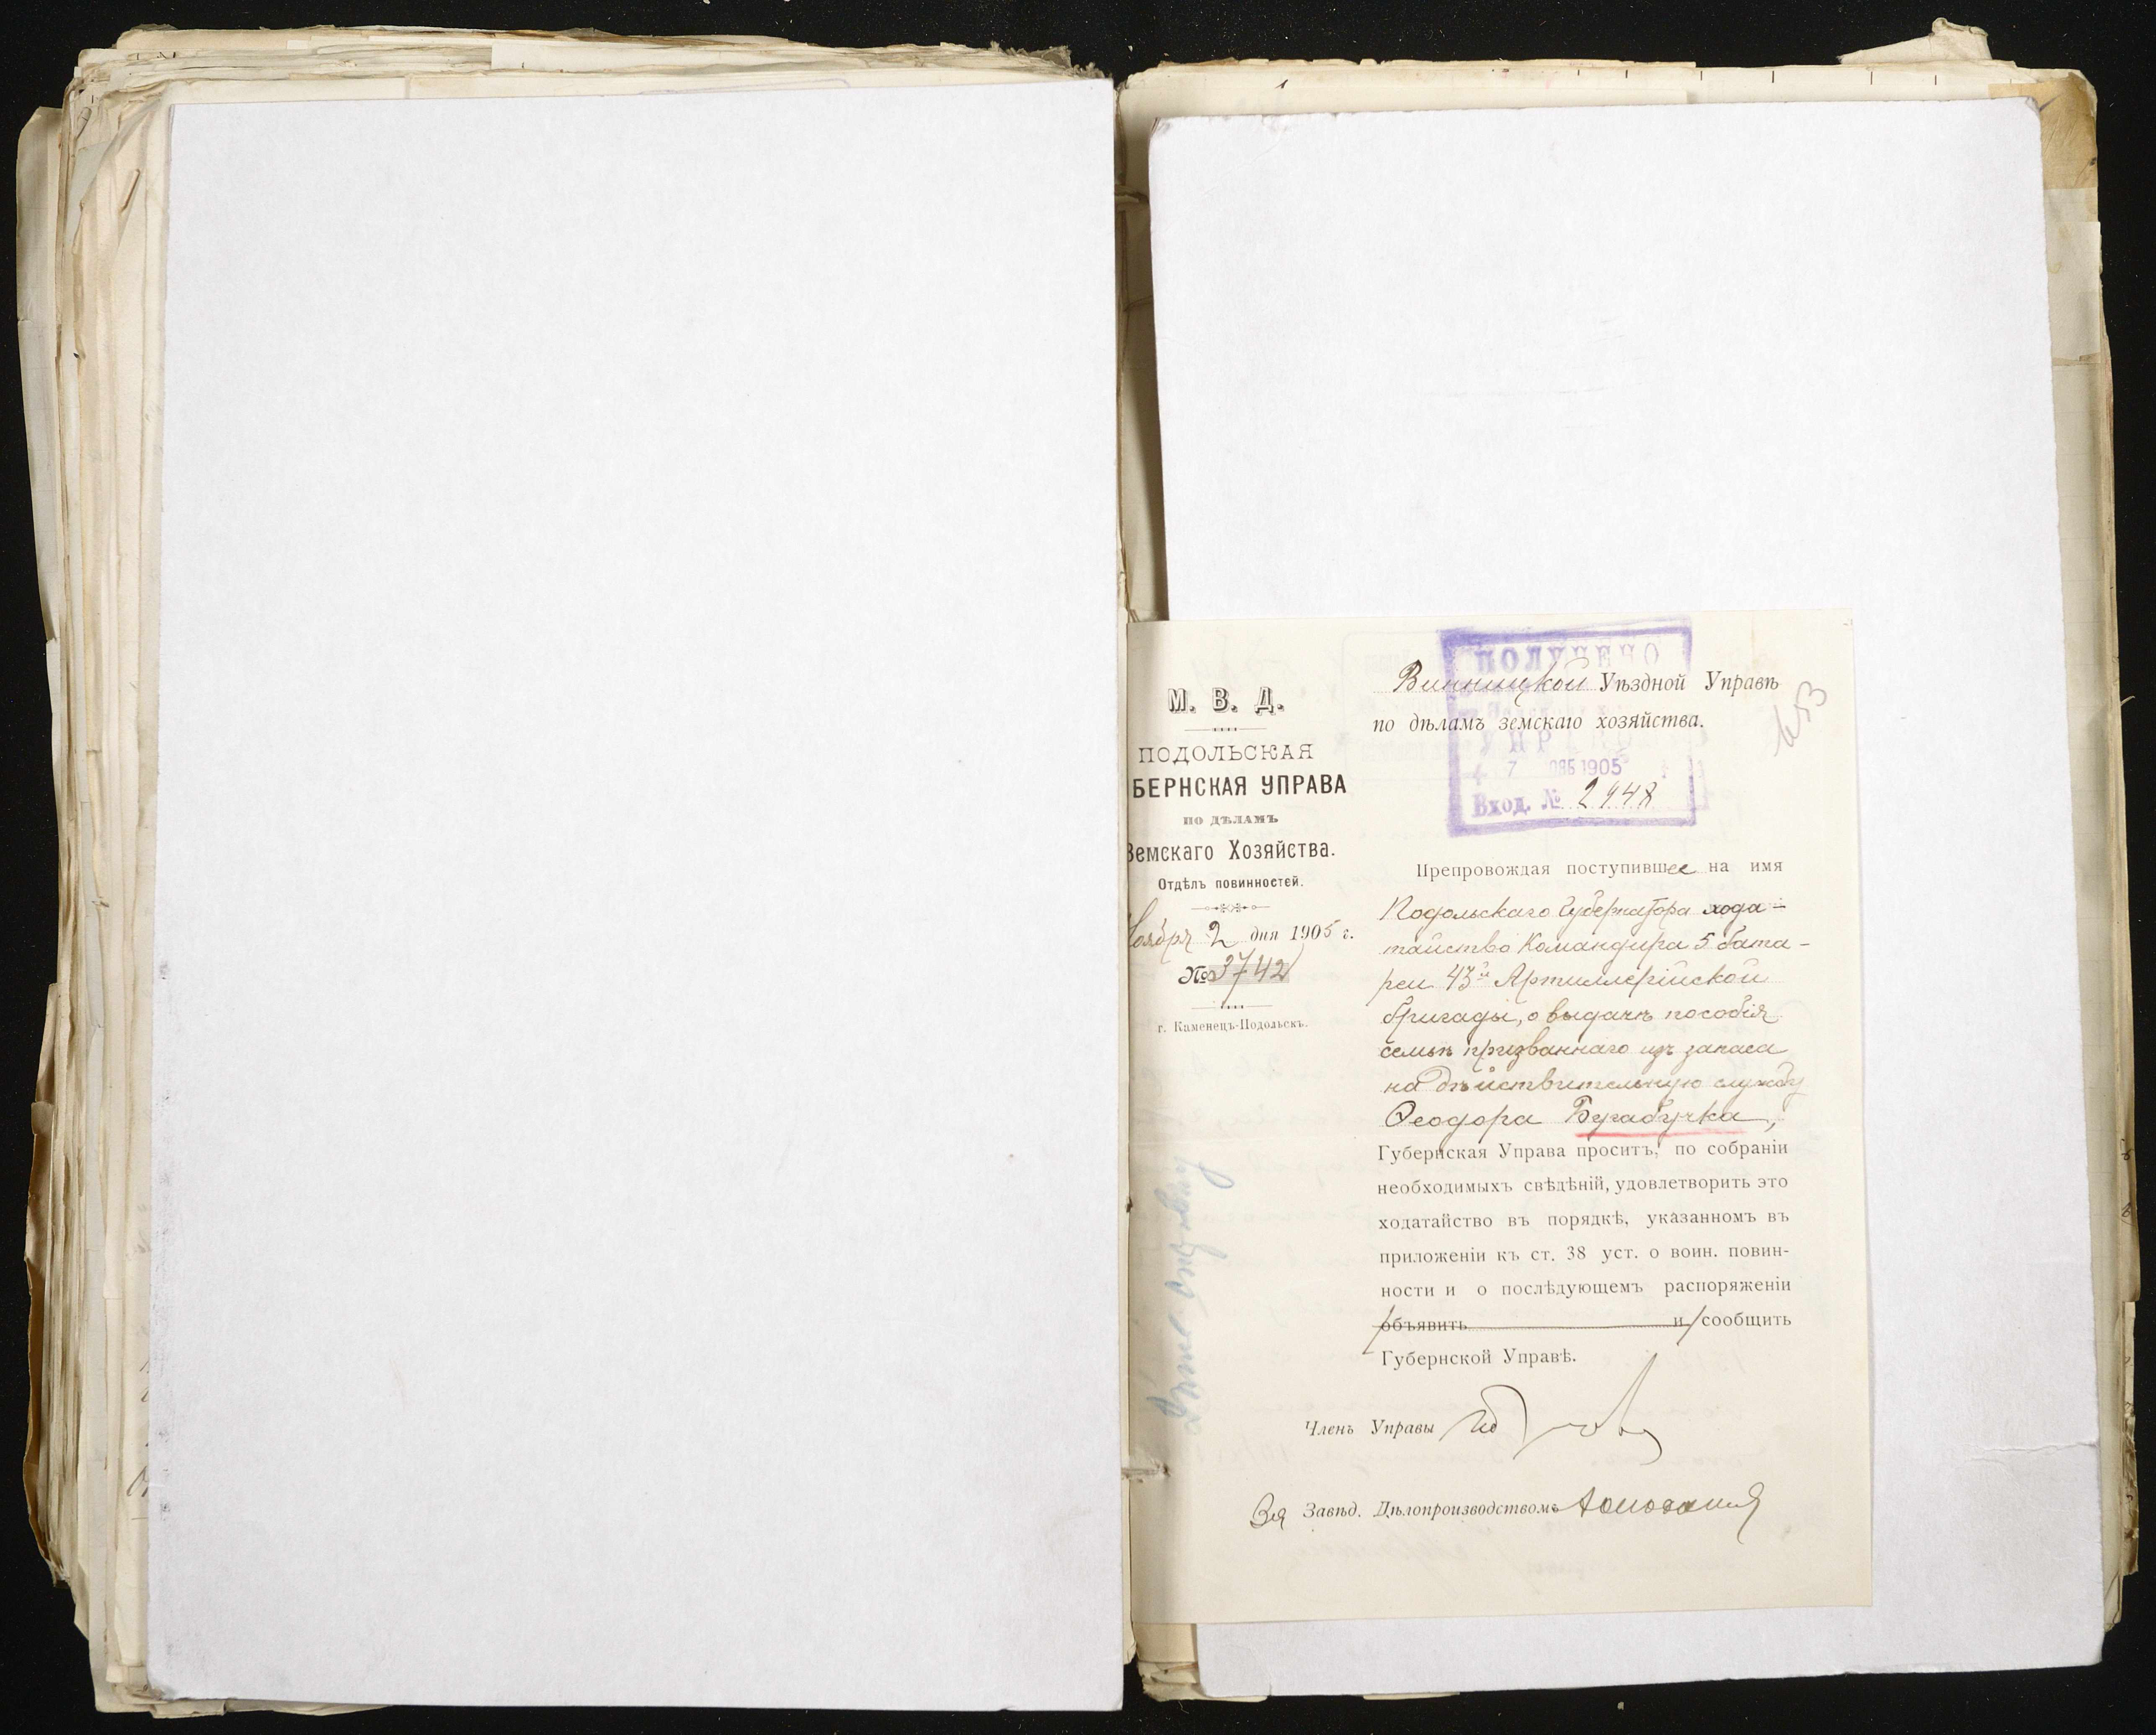 М. В. Д.
ПОДОЛЬСКАЯ
БЕРНСКАЯ УПРАВА
ПО ДѢЛАМЪ
Земскаго Хозяйства.
Отдѣлъ повинностей.
Ноября 2 дня 1905 г.
№ 3742
г. Каменецъ-Подольскъ.
ПОЛУЧЕНО
Винницкой Уѣздной Управѣ
по дѣламъ земскаго хозяйства.
653
7 1905
Вход. № 2948
Препровождая поступившее на имя
Подольскаго Губернатора хода-
тайство Командира 5 бата-
реи 43й Артиллерійской
бригады, о выдачѣ пособія
семьѣ призваннаго изъ запаса
на дѣйствительную службу
Ѳеодора Бугабучка,
Губернская Управа проситъ, по собраніи
необходимыхъ свѣдѣній, удовлетворить это
ходатайство въ порядкѣ, указанномъ въ
приложеніи къ ст. 38 уст. о воин. повин-
ности и о послѣдующемъ распоряженіи
объявить и сообщить
Губернской Управѣ.
Членъ Управы
Завѣд. Дѣлопроизводствомъ